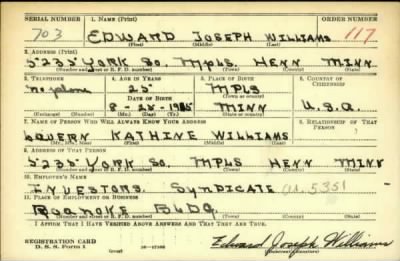 SERIAL NUMBER 1. NAME (Print) ORDER NUMBER
703 EDWARD JOSEPH WILLIAMS 117
(First) (Middle) (Last)
2. ADDRESS (Print)
5235 YORK SO. MPLS. HENN MINN
(Number and street or R. F. D. number) (Town) (County) (State)
3. TELEPHONE 4. AGE IN YEARS 5. PLACE OF BIRTH 6. COUNTRY OF CITIZENSHIP
no phone 25 MPLS
DATE OF BIRTH (Town or county)
8-25-1915 MINN U.S.A.
(Exchange) (Number) (Mo.) (Day) (Yr.) (State or country)
7. NAME OF PERSON WHO WILL ALWAYS KNOW YOUR ADDRESS 8. RELATIONSHIP OF THAT PERSON
KATHINE WILLIAMS
9. ADDRESS OF THAT PERSON
5235 YORK SO. MPLS HENN MINN
(Number and street or R. F. D. number) (Town) (County) (State)
10. EMPLOYER'S NAME
INVESTORS SYNDICATE 5351
11. PLACE OF EMPLOYMENT OR BUSINESS
ROANOKE BLDG.
I AFFIRM THAT I HAVE VERIFIED ABOVE ANSWERS AND THAT THEY ARE TRUE.
REGISTRATION CARD
D. S. S. Form 1 Edward Joseph Williams